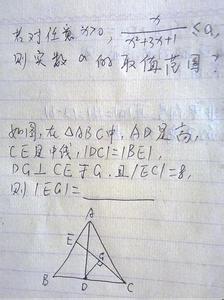 若对任意x>0, x/(x²+3x+1) ≤a,
则实数a的取值范围?
如图,在△ABC中,AD是高,
CE是中线,|DC|=|BE|,
DG⊥CE于G,且|EC|=8,
则|EG|=______
A
E
G
B
D
C